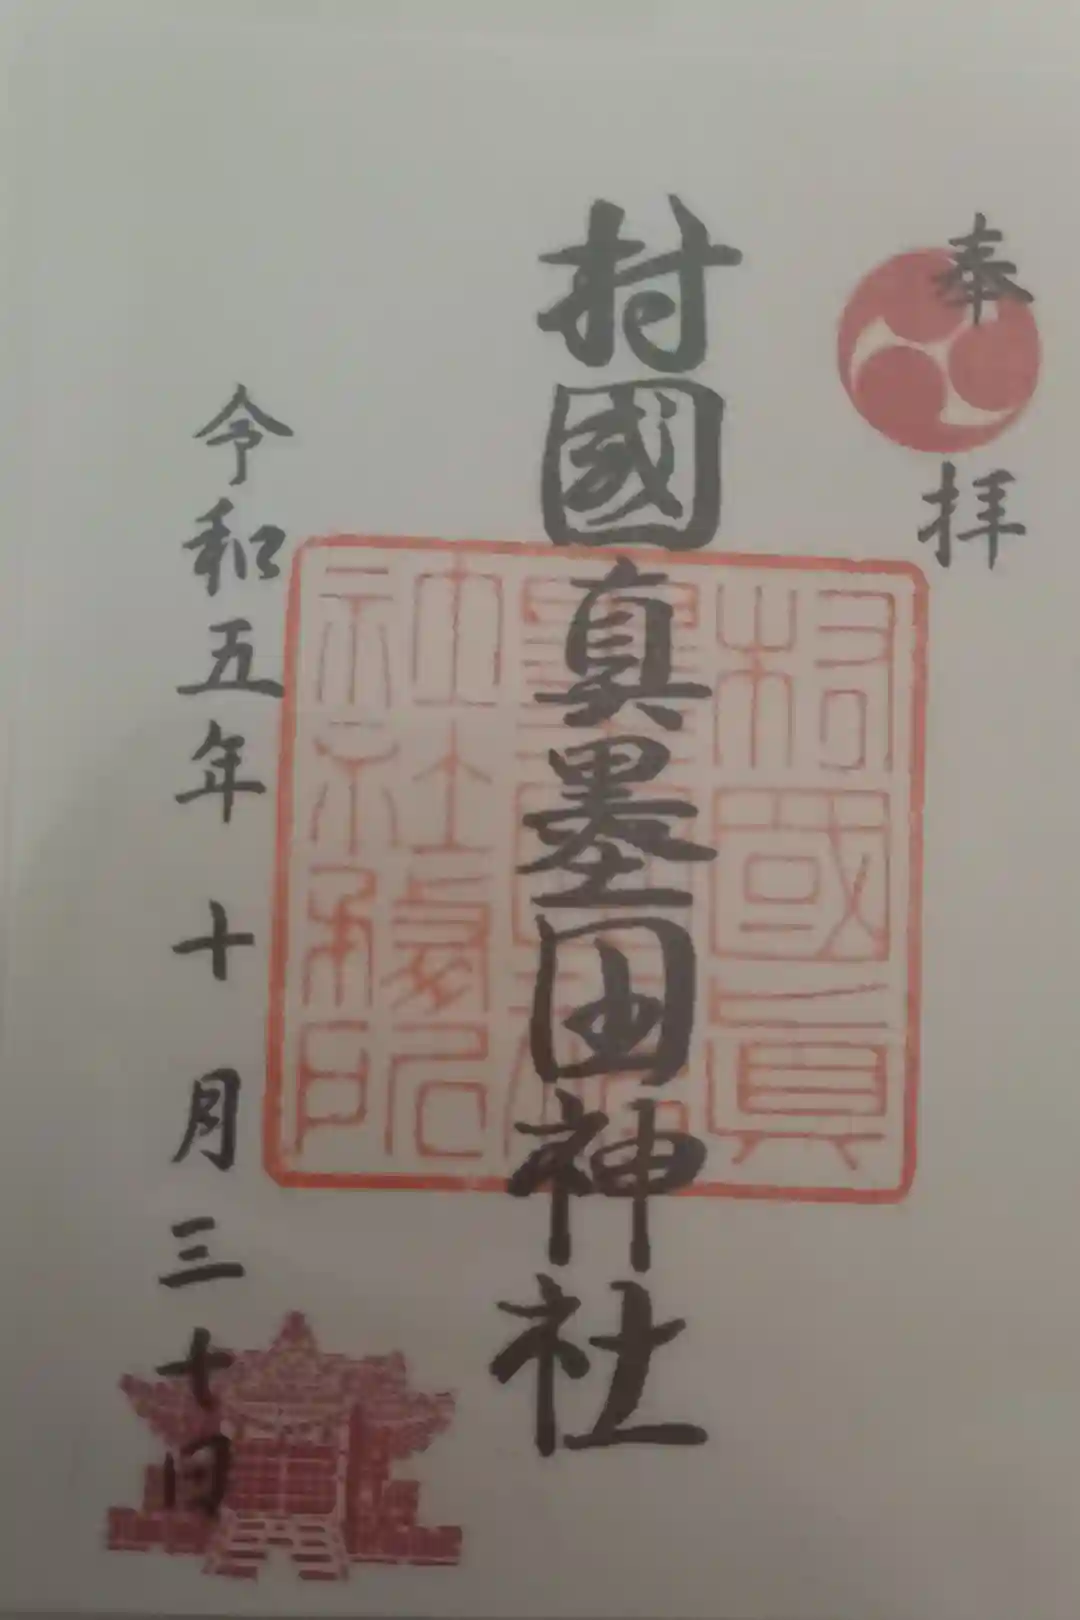 奉拝
村國真墨田神社
令和五年十月三十日
村國眞
墨田神
社社務所